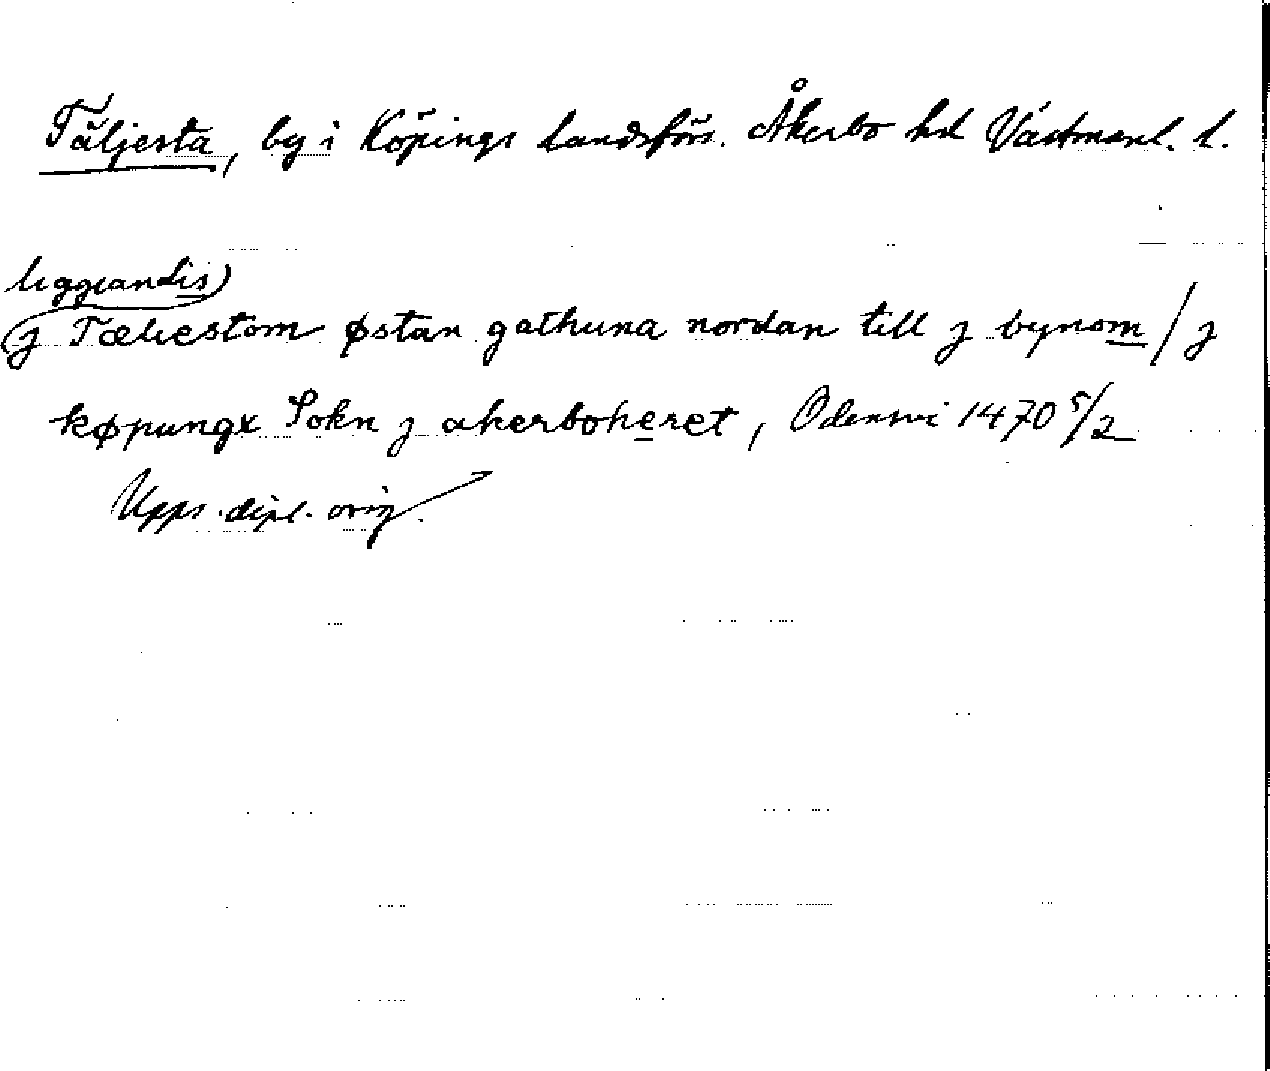 Täljesta, by i Köpings landsförs. Åkerbo hd Västmanl. l.
liggiandis)
j Tæliestom østan gathuna nordan till j bynom / j
køpungx Sokn j akerboheret, Odensvi 1470 5/2
Upps. dipl. orig.